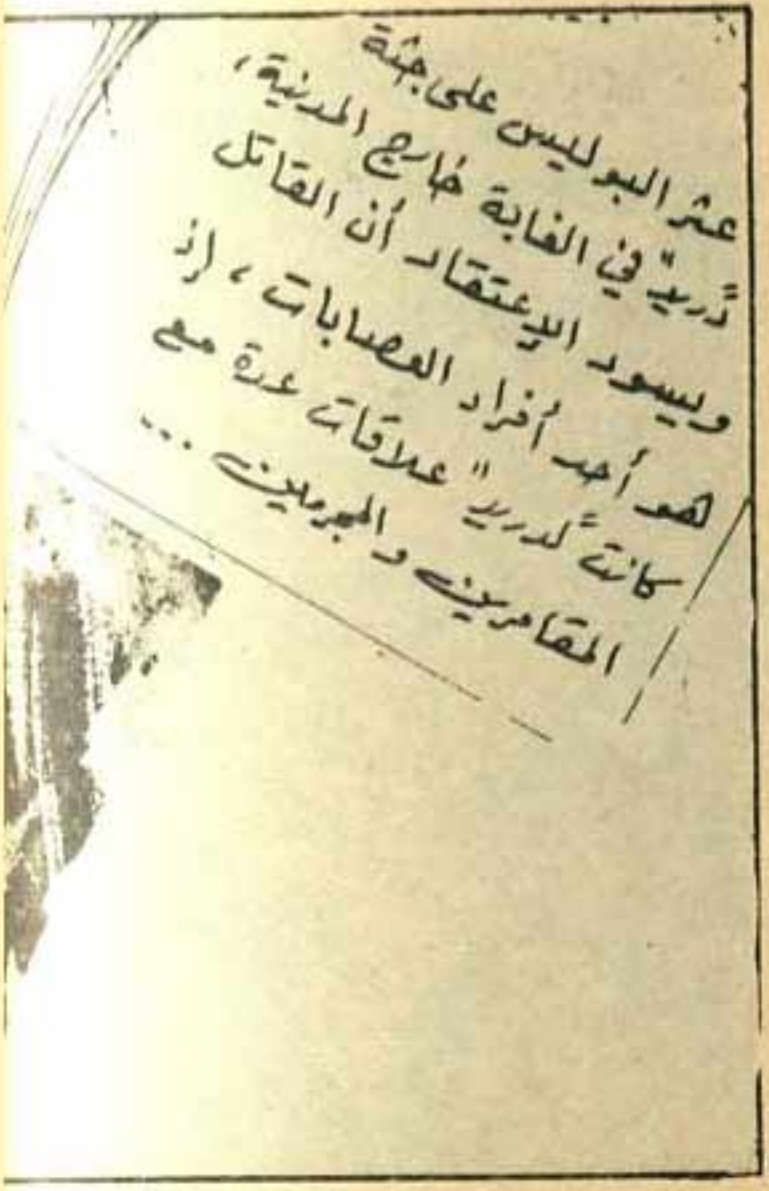 عثر البوليس على جثة
"دريد" في الغابة خارج المدينة،
ويسود الإعتقاد أن القاتل
هو أحد أفراد العصابات، إذ
كانت "لدريد" علاقات عدة مع
المقامرين والمجرمين...